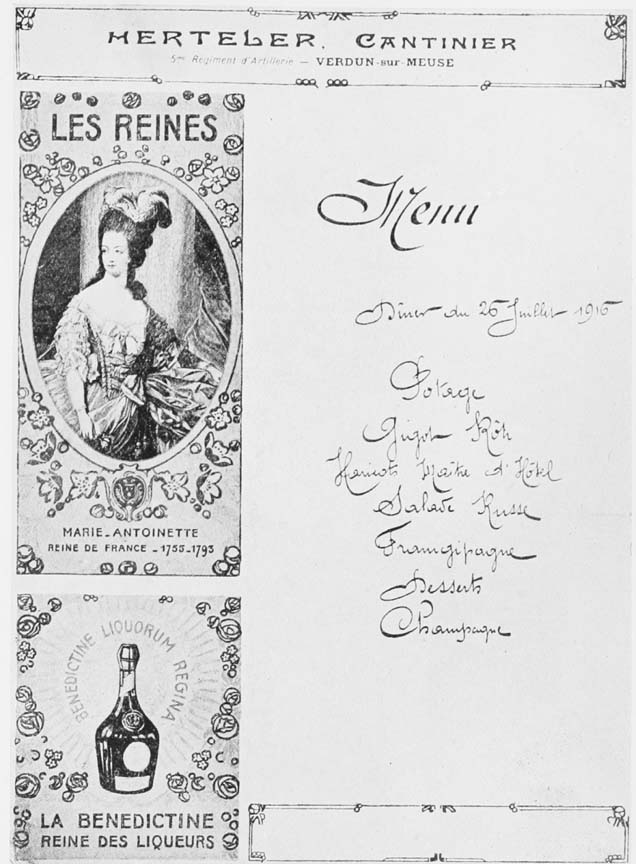 HERTELER, CANTINIER
5me Régiment d'Artillerie — VERDUN-sur-MEUSE
LES REINES
MARIE-ANTOINETTE
REINE DE FRANCE - 1755-1793
BENEDICTINE LIQUORUM REGINA
LA BENEDICTINE
REINE DES LIQUEURS
Menu
Dîner du 26 Juillet 1916
Potage
Gigot Rôti
Haricots Maître d'Hôtel
Salade Russe
Framgipagne
Desserts
Champagne